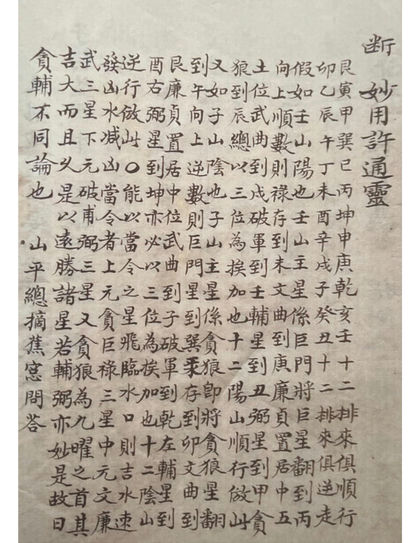 斷 妙用許通靈
艮寅甲巽巳丙坤申庚乾亥壬十二排來俱順行
卯乙辰午丁未酉辛戌子癸丑十二排來俱逆走
假如壬山陽也壬山主星係巨門將巨星翻丙
向上順數則祿存到未文星到庚廉貞置居中五
土位武曲到戌破軍到壬輔星到丑弼星到甲貪
狼到辰總以三位為挨加也十二陽山順行倣此
又如子山陰也子山主星係貪狼即將貪狼星翻
到午向上逆數則巨門星到巽祿存到卯文曲星到
艮廉貞置居中位武曲到子破軍到乾左輔星到
酉右弼星到坤亦必以三位為挨加也十二陰山
逆行倣此○能以當令之星飛臨水口則吉水速
發凶水減凶當令者上元貪巨祿三星中元文廉
武三星下元破甫弼三星又貪狼為九曜之首其
吉大而且久是以遠勝諸星若輔弼亦妙是故曰
貪輔不同論也 山平總摘蕉窓問答